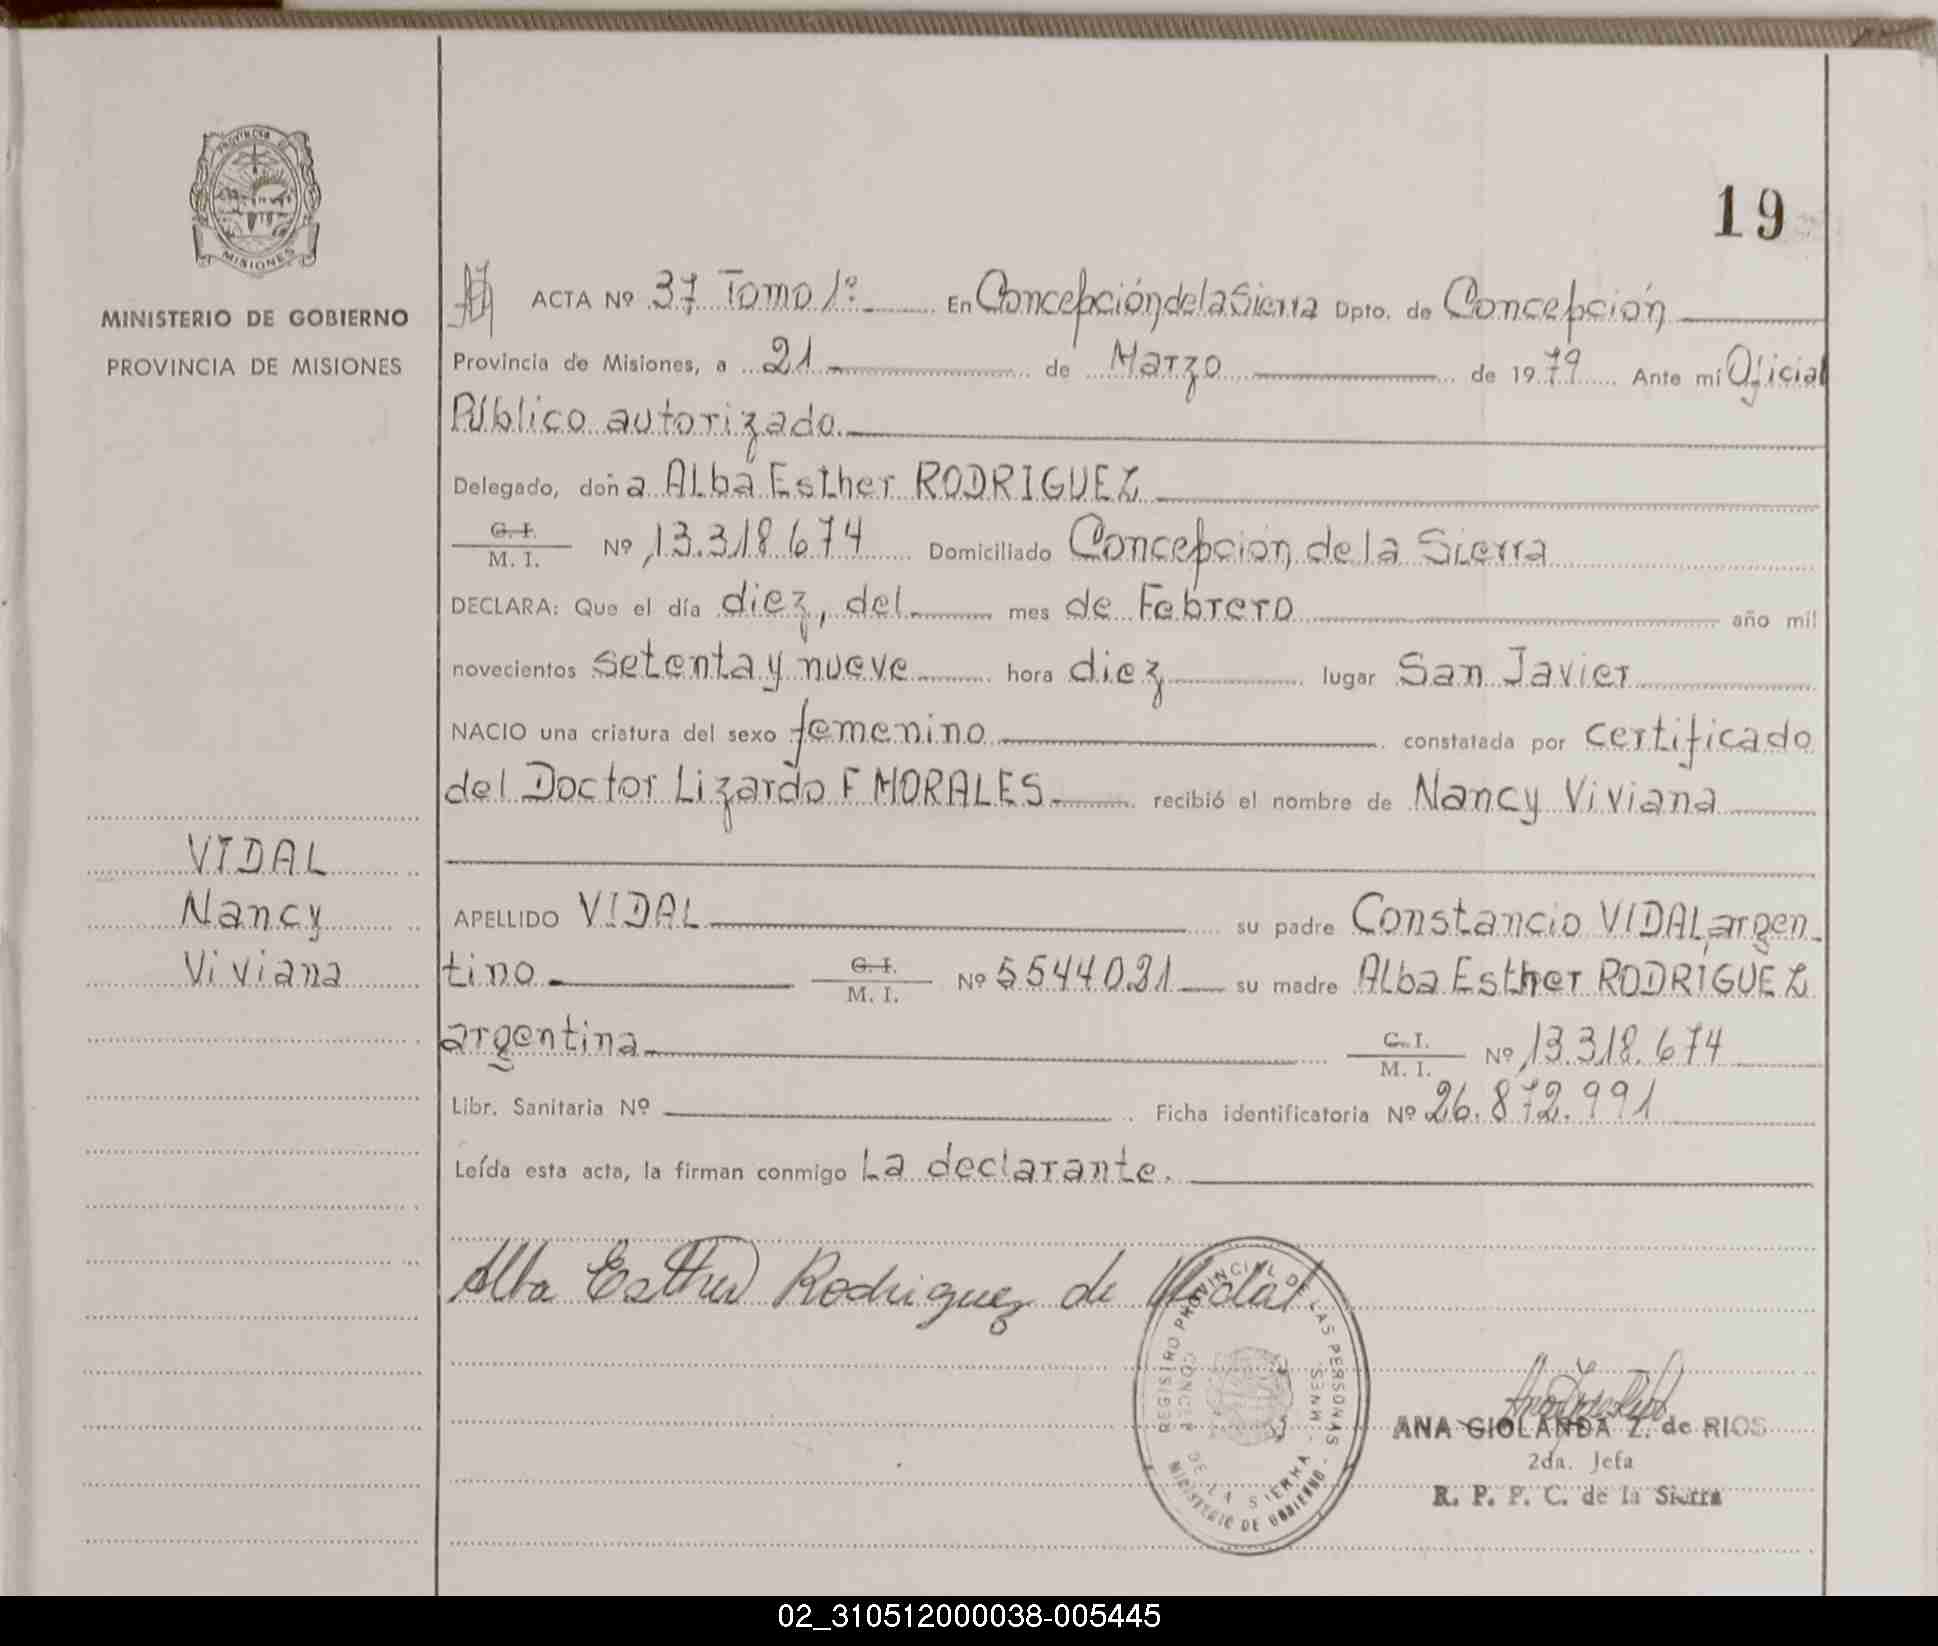 19
PROVINCIA DE
MISIONES
MINISTERIO DE GOBIERNO
PROVINCIA DE MISIONES
ACTA Nº 37 Tomo 1º En Concepción de la Sierra Dpto. de Concepción
Provincia de Misiones, a 21 de Marzo de 1979 Ante mí Oficial
Público autorizado
Delegado, doña Alba Esther RODRIGUEZ
C. I.
M. I. Nº 13.318.674 Domiciliado Concepción de la Sierra
DECLARA: Que el día diez, del mes de Febrero año mil
novecientos setenta y nueve hora diez lugar San Javier
NACIO una criatura del sexo femenino constatada por certificado
del Doctor Lizardo F MORALES recibió el nombre de Nancy Viviana
VIDAL
Nancy
Viviana
APELLIDO VIDAL su padre Constancio VIDAL, argen
tino C. I. M. I. Nº 5544031 su madre Alba Esther RODRÍGUEZ
argentina C. I. M. I. Nº 13.318.674
Libr. Sanitaria Nº Ficha identificatoria Nº 26.872.991
Leída esta acta, la firman conmigo La declarante.
Alba Esther Rodriguez de Vidal
REGISTRO PROVINCIAL DE LAS PERSONAS
DE LA SIERRA
MINISTERIO DE GOBIERNO
ANA GIOLANDA Z. de RIOS
2da. Jefa
R. P. P. C. de la Sierra
02_310512000038-005445